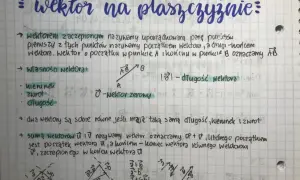 wektor na płaszczyźnie
→ wektorem zaczepionym nazywamy uporządkowaną parę punktów
pierwszy z tych punktów nazywamy początkiem wektora, a drugi - końcem
wektora. wektor o początku w punkcie A i końcu w punkcie B oznaczamy AB
→ własności wektora:
AB
A
B
- kierunek
- zwrot
- długość
|AB| - długość wektora
0 - wektor zerowy
→ dwa wektory są sobie równe jeśli mają taką samą długość, kierunek i zwrot
→ sumą wektorów
i
nazywamy wektor oznaczamy
którego początkiem
jest początek wektora
, a końcem - koniec wektora równego wektorowi
, zaczepionego w końcu wektora